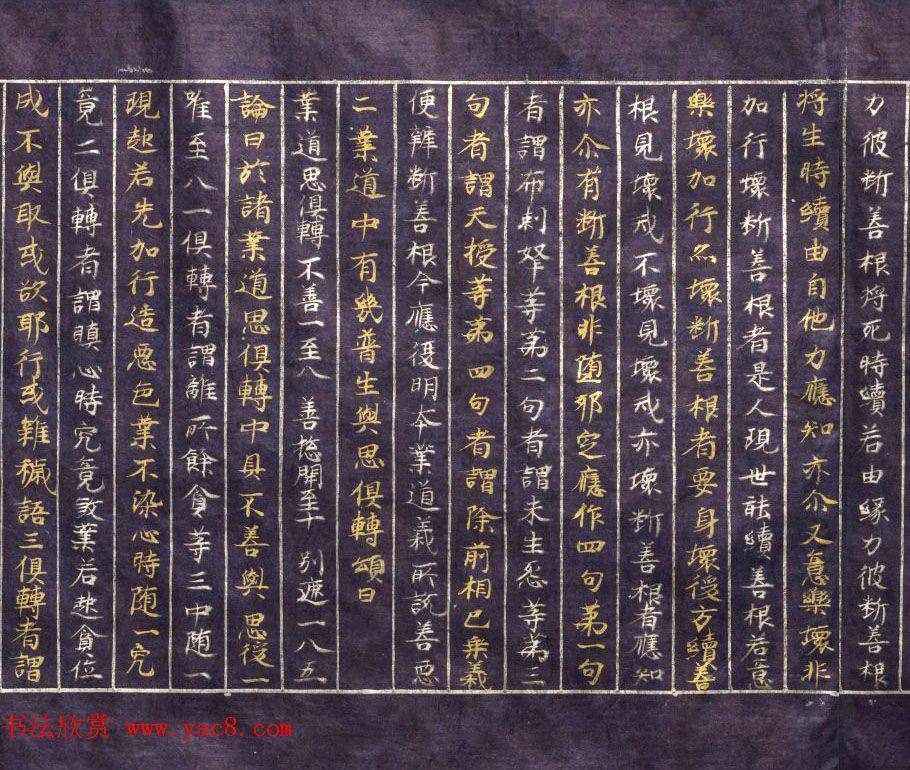 力彼断善根将死時續若由緣力彼断善根
将生時續由自他力應知亦尒又意樂壞非
加行壞断善根者是人現世能續善根若意
樂壞加行亦壞断善根者要身壞後方續善
根見壞戒不壞見壞戒亦壞断善根者應知
亦尒有断善根非堕邪定應作四句第一句
者謂布剌拏等第二句者謂未生怨等第三
句者謂天授等第四句者謂除前相已乗義
便辯断善根今應復明本業道義所說善惡
二業道中有幾普生與思俱轉頌曰
業道思俱轉 不善一至八 善惣開至十 別遮一八五
論曰於諸業道思俱轉中且不善與思從一
唯至八一俱轉者謂離所餘貪等三中随一
現起若先加行造惡色業不染心時随一究
竟二俱轉者謂瞋心時究竟煞業若起貪位
成不與取或欲耶行或雜穢語三俱轉者謂
书法欣赏 www.yac8.com